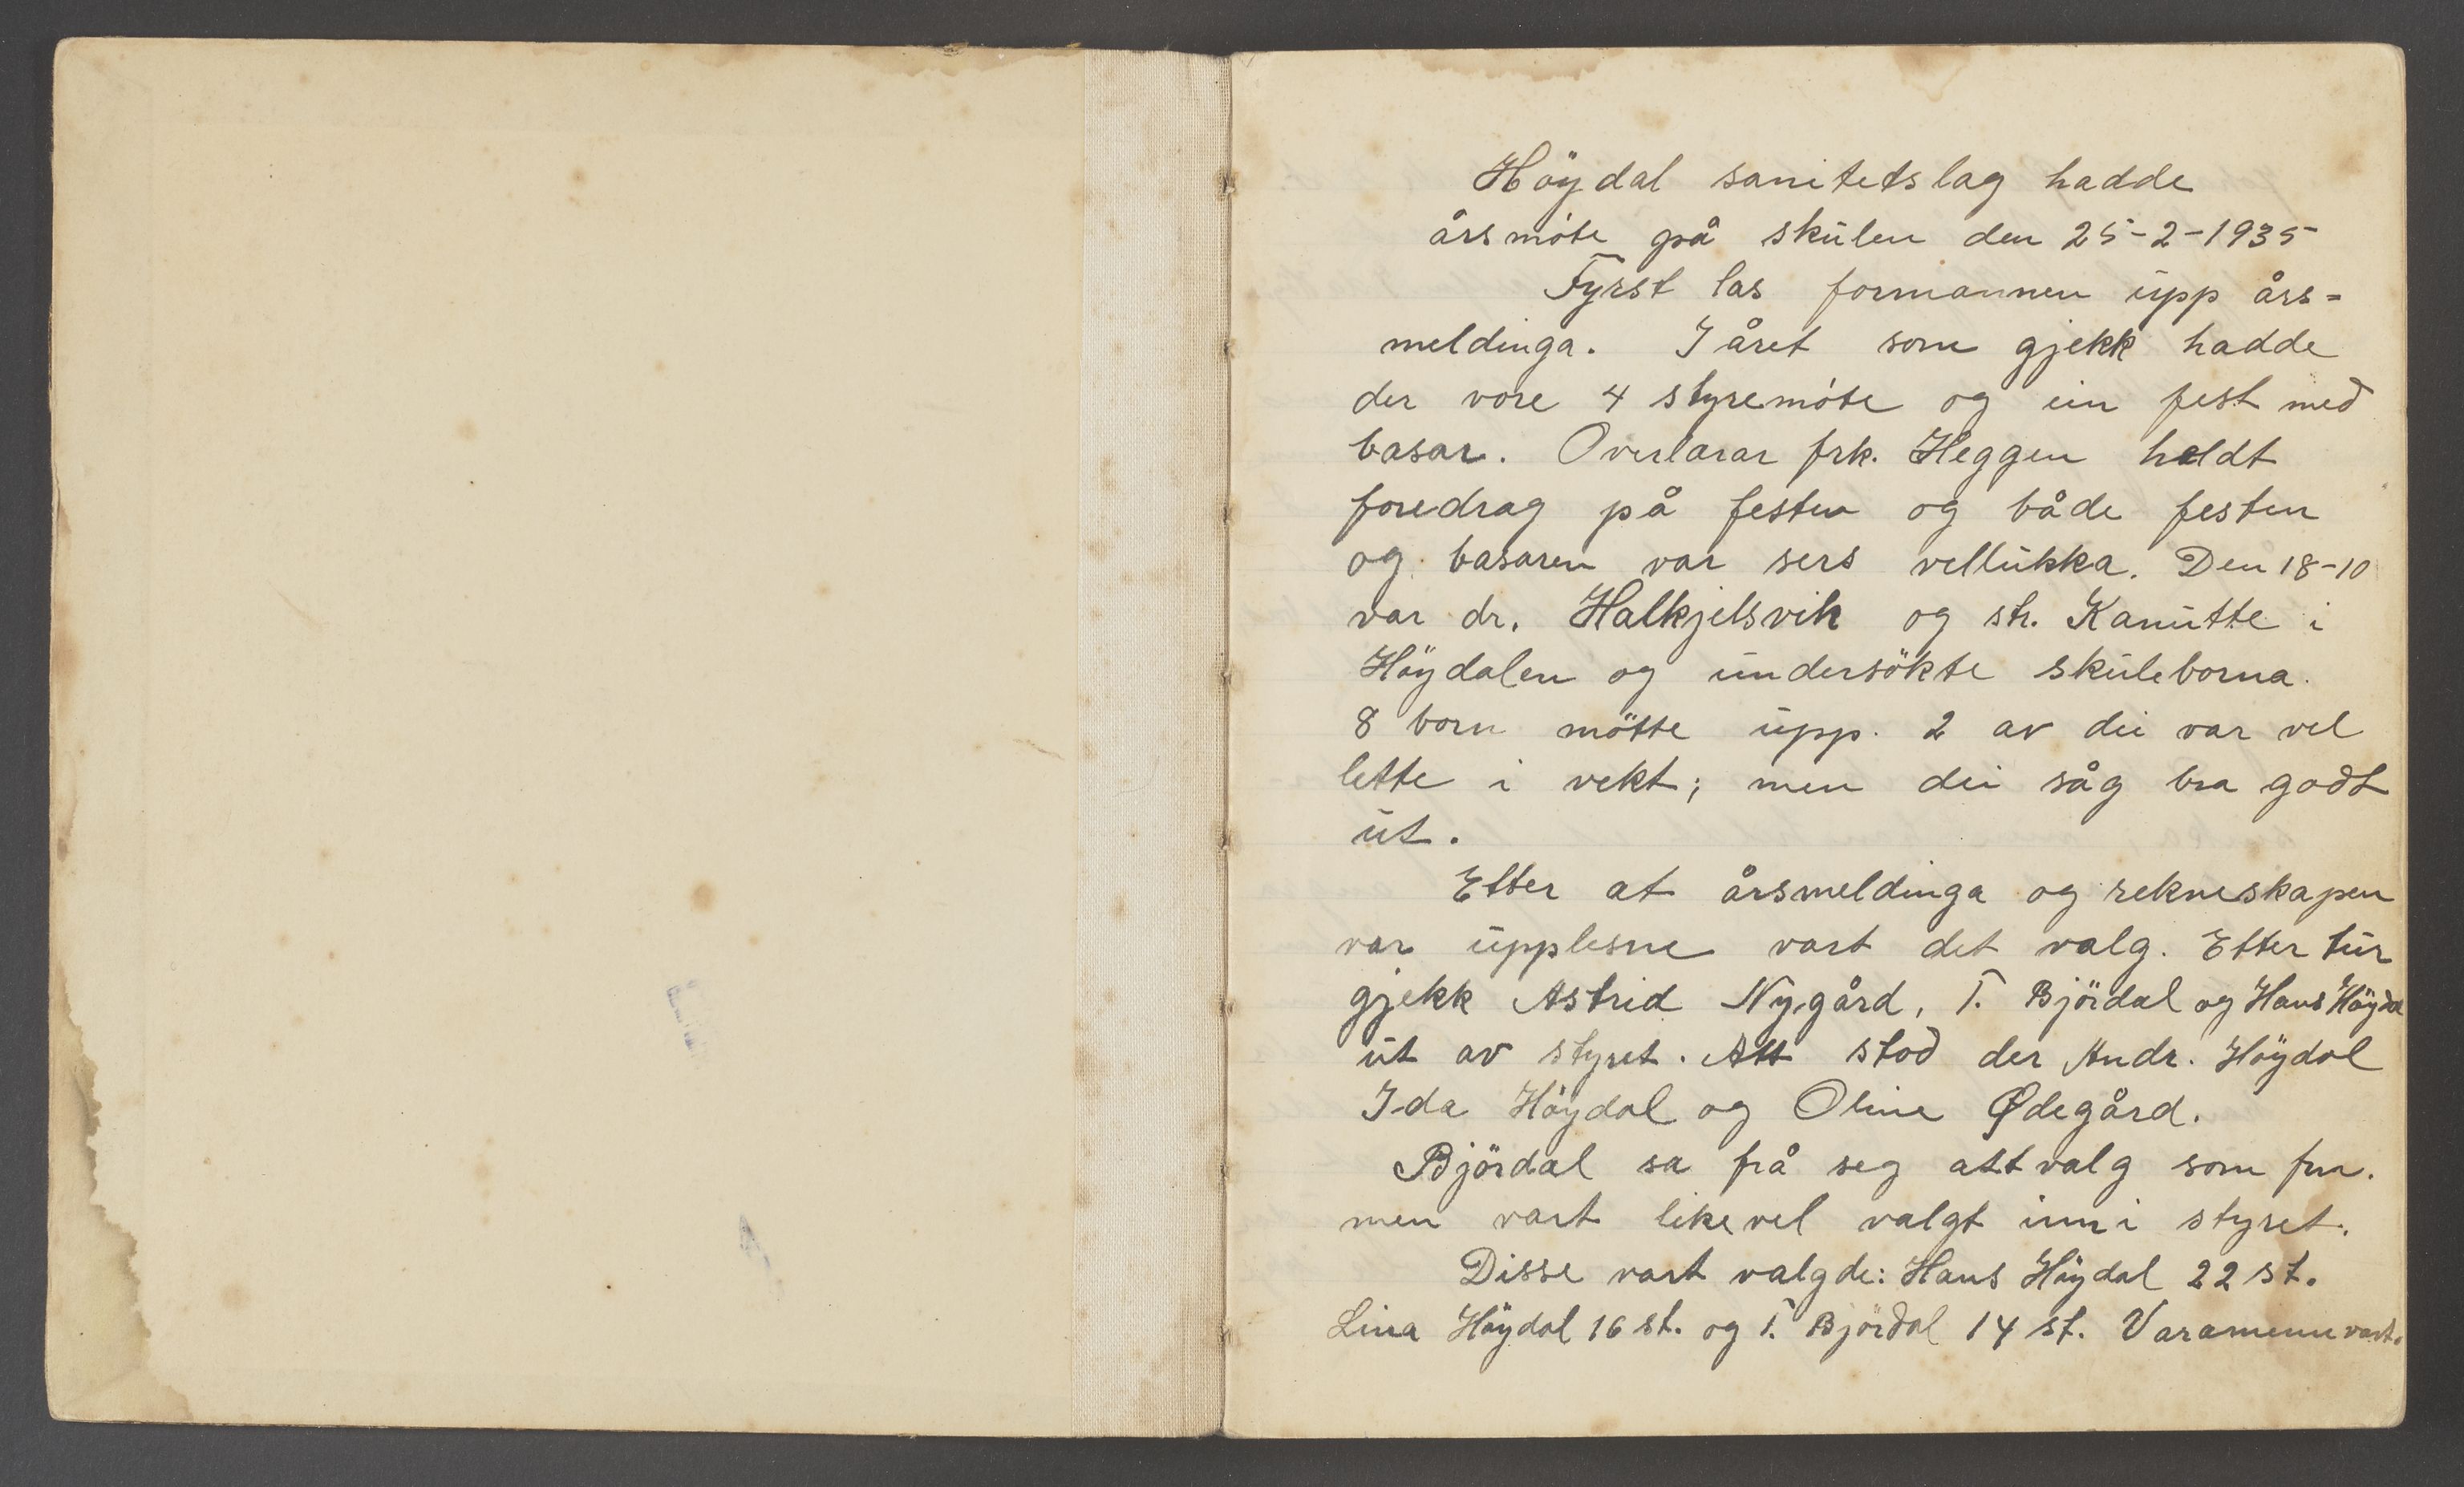 Höydal sanitetslag hadde
årsmöte på skulen den 25-2-1935
Fyrst las formannen upp års=
meldinga. I året som gjekk hadde
der vore 4 styremöte og ein fest med
basar. Overlærar frk. Heggen heldt
foredrag på festen og både festen
og basaren var sers vellukka. Den 18-10
var dr. Halkjelsvik og str. Kanutte i
Höydalen og undersökte skuleborna.
8 born mötte upp. 2 av dei var vel
lette i vekt; men dei såg bra godt
ut.
Etter at årsmeldinga og rekneskapen
var upplesne vart det valg. Etter tur
gjekk Astrid Nygård, T. Björdal og Hans Höydal
ut av styret. Att stod der Andr. Höydal
Ida Höydal og Oline Ødegård.
Björdal sa frå seg attvalg som fm.
men vart likevel valgt inn i styret.
Disse vart valgde: Hans Höydal 22 st.
Lina Höydal 16 st. og T. Björdal 14 st. Varamenn vart.